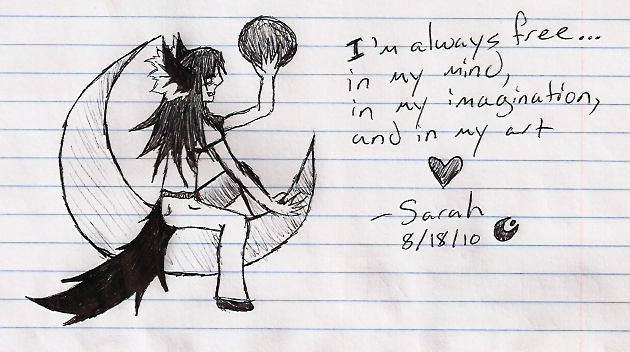 I'm always free...
in my mind,
in my imagination,
and in my art
- Sarah
8/18/10